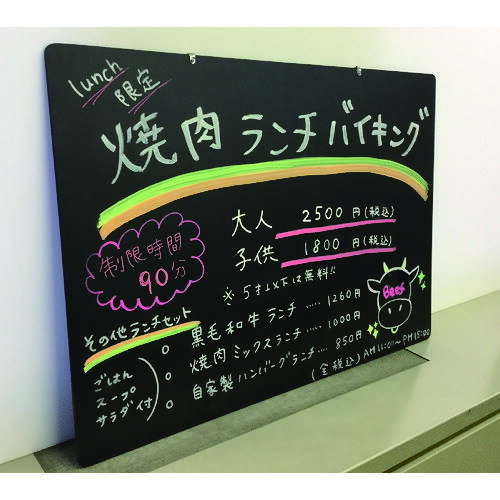 lunch
限定
焼肉ランチバイキング
制限時間
90分
大人 2500円(税込)
子供 1800円(税込)
※5才以下は無料!!
Beef
その他ランチセット
ごはん
スープ
サラダ付
○黒毛和牛ランチ.....1260円
○焼肉ミックスランチ....1000円
○自家製ハンバーグランチ...850円
(全税込)AM11:00~PM15:00